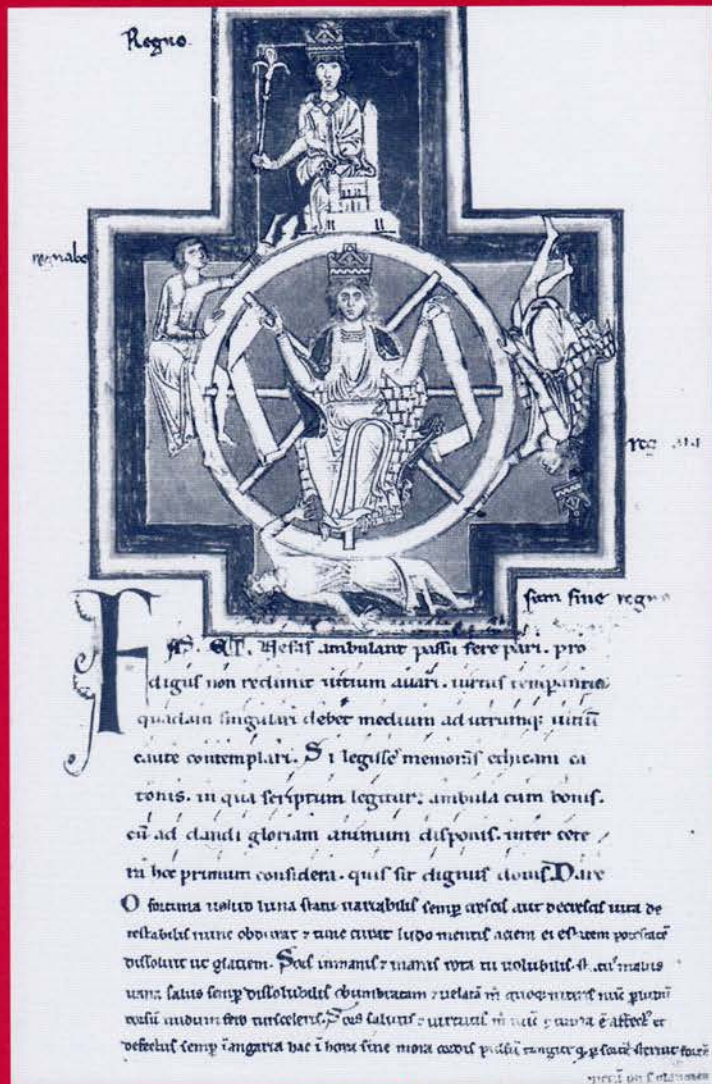 Regno.
regnabo
reg
sum sine regno
FAS. ET. Nefas ambulant passu fere pari. pro
digus non redimit uitium auari. uirtus temperantia
quadam singulari debet medium ad utrumq; uitiū
caute contemplari. Si legisse memoras ethicam ca
tonis. in qua scriptum legitur: ambula cum bonis.
cū ad dandi gloriam animum disponis. inter cete
ra hoc primum considera. quis sit dignus donis. Dare
O fortuna uelud luna statu uariabilis semp crescis aut decrescis uita de
testabilis nunc obdurat & tunc curat ludo mentis aciem egestatem potestatē
dissoluit ut glaciem. Sors immanis & inanis rota tu uolubilis status malus
uana salus semp dissolubilis obumbratam & uelatā m quoq niteris nūc
dorsū nudum fero tui sceleris. Sors salutis & uirtutis m nūc &
defectus semp ī angaria hac ī hora sine mora cordis pulsū tangite